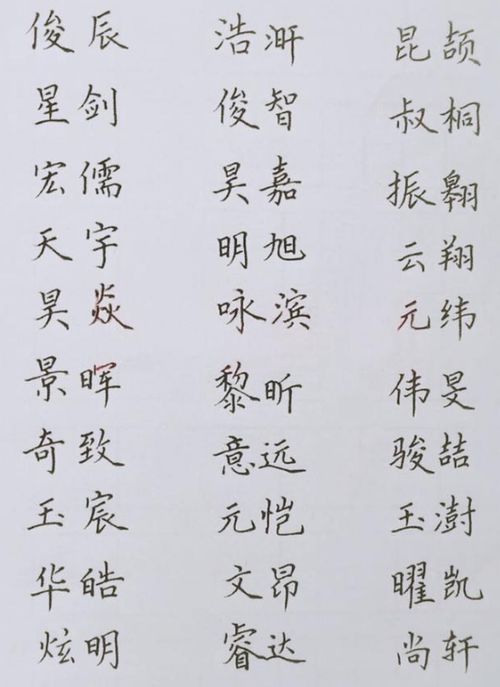 俊辰 浩洴 昆颉
星剑 俊智 叔桐
宏儒 昊嘉 振翱
天宇 明旭 云翔
昊焱 咏滨 元纬
景晖 黎昕 伟旻
奇致 意远 骏喆
玉宸 元恺 玉澍
华皓 文昂 曜凯
炫明 睿达 尚轩